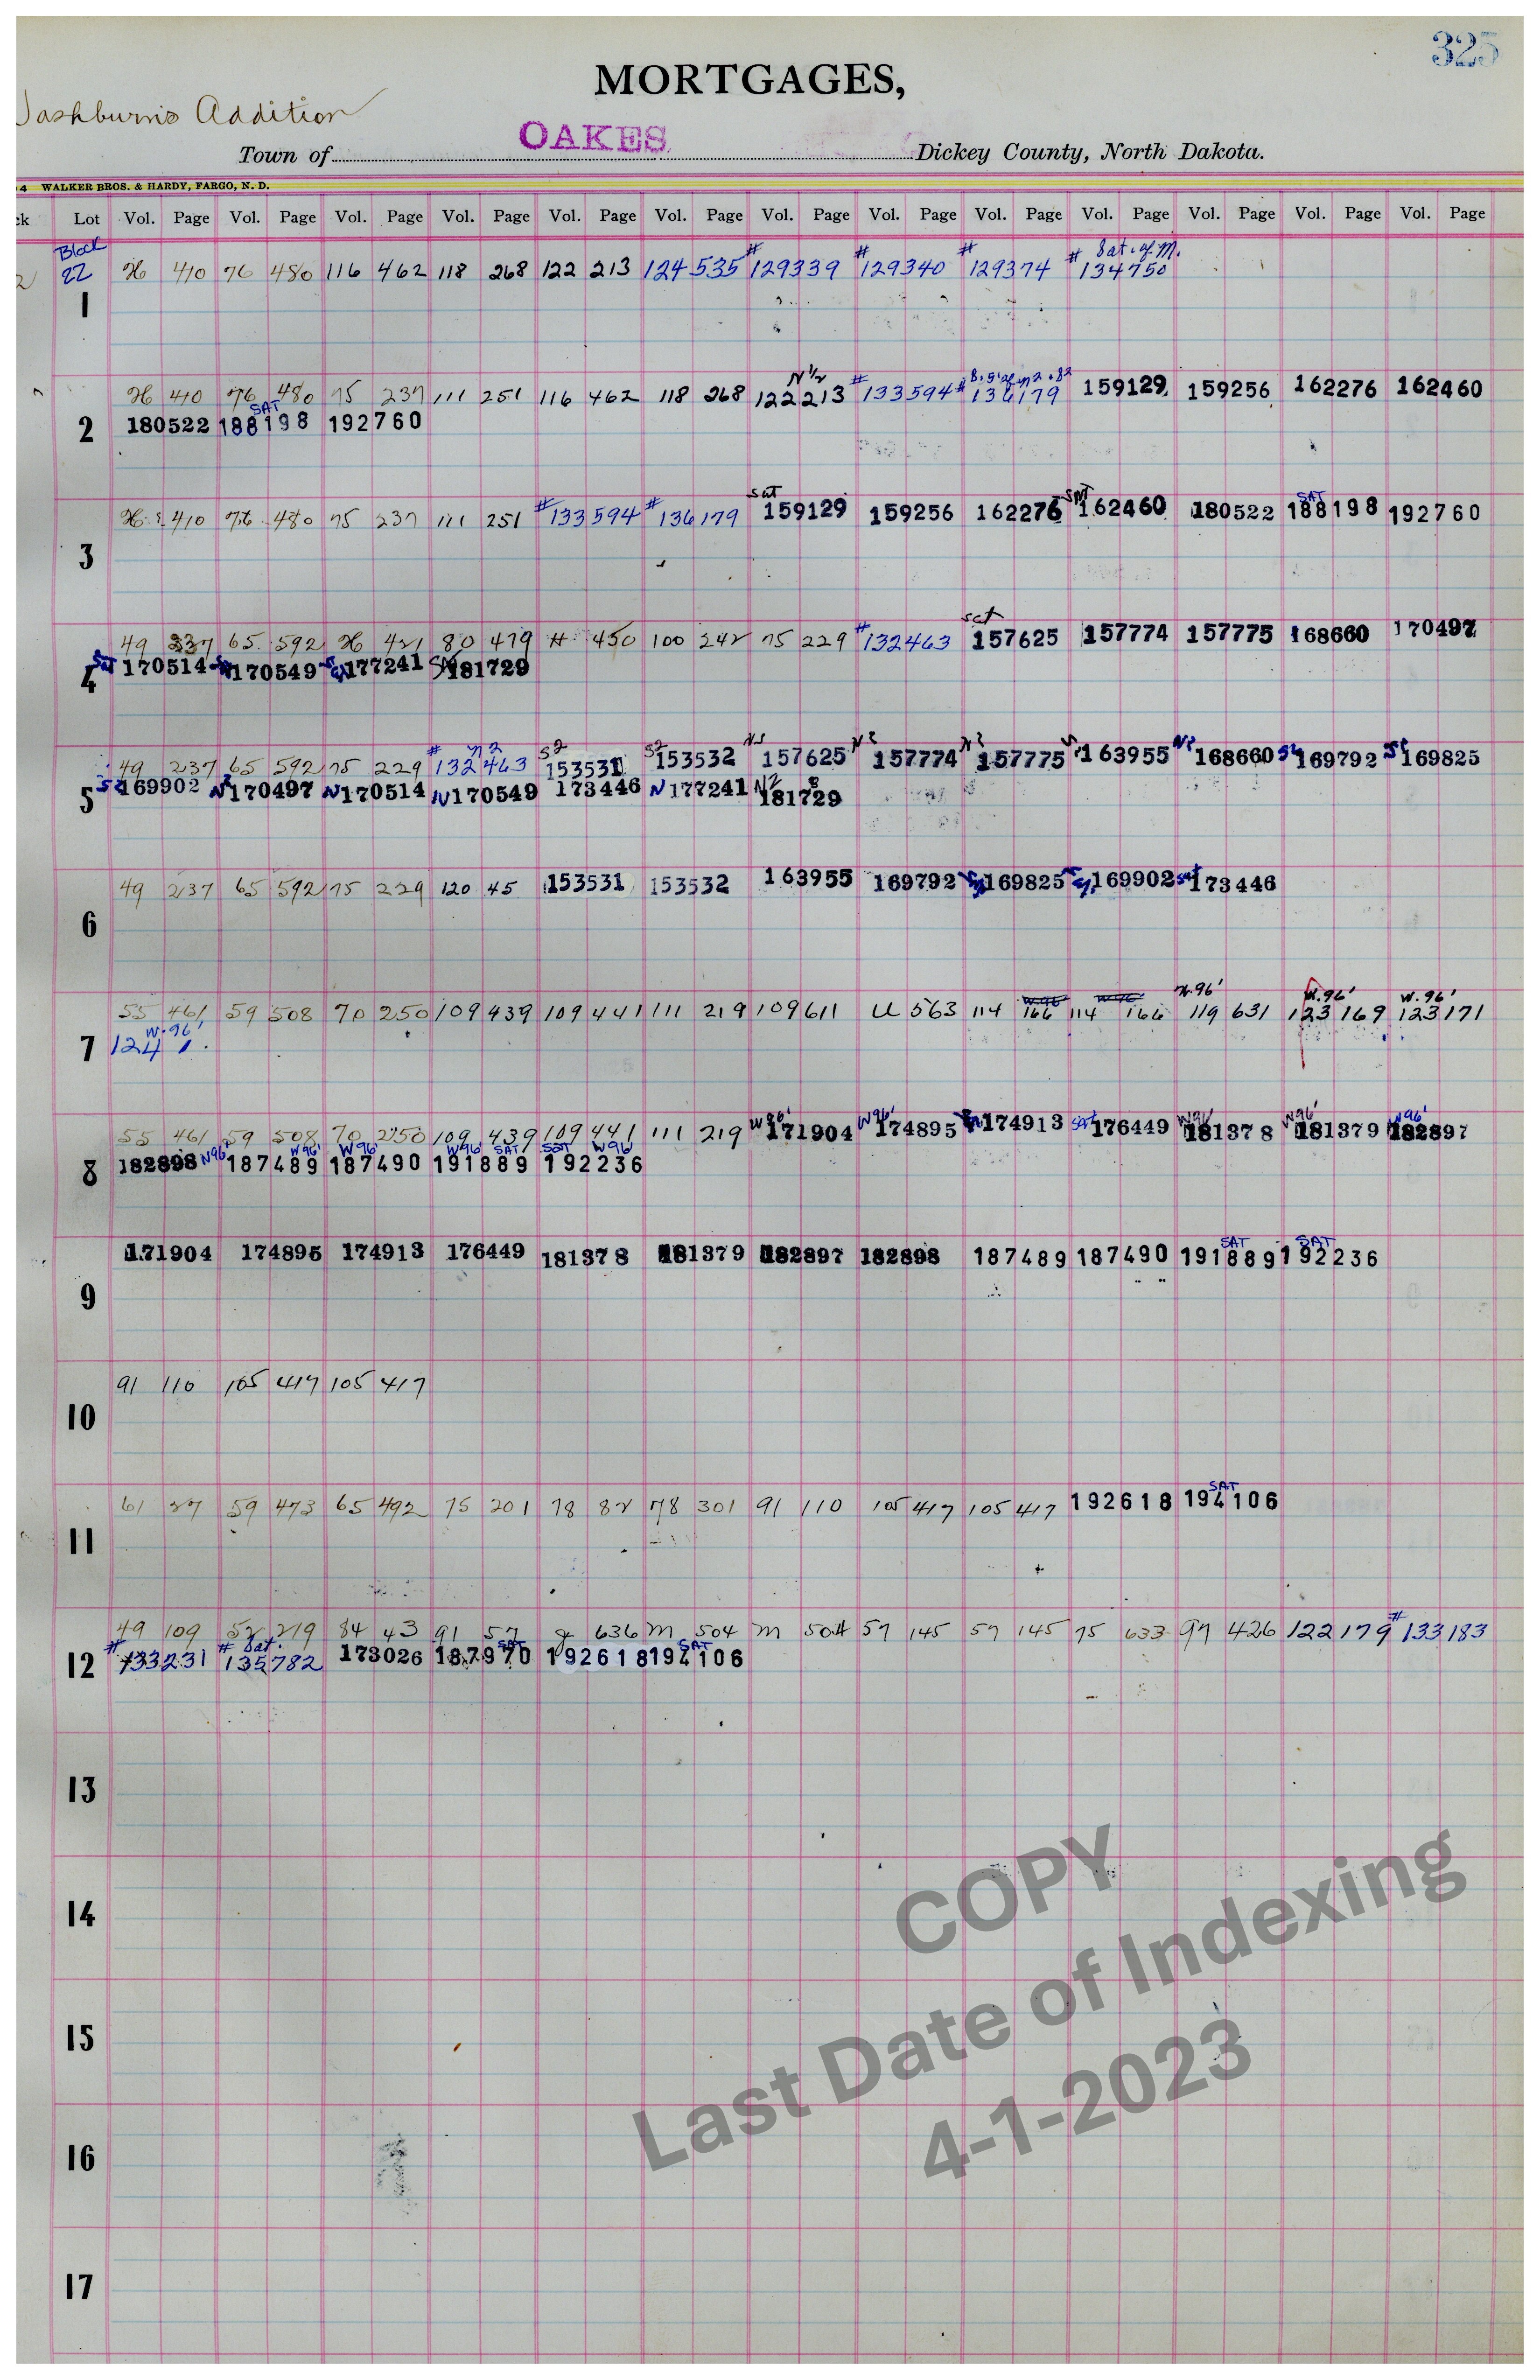 325
MORTGAGES,
Addition
OAKES
Town of Dickey County, North Dakota.
4 WALKER BROS. & HARDY, FARGO, N. D.
ck Lot Vol. Page Vol. Page Vol. Page Vol. Page Vol. Page Vol. Page Vol. Page Vol. Page Vol. Page Vol. Page Vol. Page Vol. Page Vol. Page
Block # # # # Sat. of M.
22 410 76 480 116 462 118 268 122 213 124 535 129339 129340 129374 134750
1
N 1/2
410 76 480 75 237 111 251 116 462 118 268 122 213 # 133594 # 136179 159129 159256 162276 162460
SAT
2 180522 188198 192760
sat SAT SAT
410 76 480 75 237 111 251 # 133594 # 136179 159129 159256 162276 162460 180522 188198 192760
3
sat
49 237 65 592 421 80 479 H 450 100 242 75 229 # 132463 157625 157774 157775 168660 170497
4 Sat 170514 170549 177241 181729
# N2 S2 S2
49 237 65 592 75 229 132463 153531 153532 157625 157774 157775 163955 168660 S2 169792 169825
5 S2 169902 N2 170497 N 170514 N 170549 173446 N 177241 N2 181729
49 237 65 592 75 229 120 45 153531 153532 163955 169792 169825 169902 sat 173446
6
W.96' W.96' W.96' W.96' W.96'
55 461 59 508 70 250 109 439 109 441 111 219 109 611 U 563 114 166 114 166 119 631 123 169 123 171
W.96'
7 124 1
55 461 59 508 70 250 109 439 109 441 111 219 W96' 171904 W96' 174895 174913 sat 176449 W96' 181378 W96' 181379 W96' 182897
W96' W96' W96' W96' SAT SAT W96'
8 182898 187489 187490 191889 192236
SAT SAT
171904 174895 174913 176449 181378 181379 182897 182898 187489 187490 191889 192236
9
91 110 105 417 105 417
10
SAT
61 27 59 473 65 492 75 201 78 82 78 301 91 110 105 417 105 417 192618 194106
11
49 109 52 219 84 43 91 57 636 M 504 M 504 57 145 57 145 75 633 97 426 122 179 # 133183
# # Sat. SAT SAT
12 133231 135782 173026 187970 192618 194106
13
14
15
16
17
COPY
Last Date of Indexing
4-1-2023